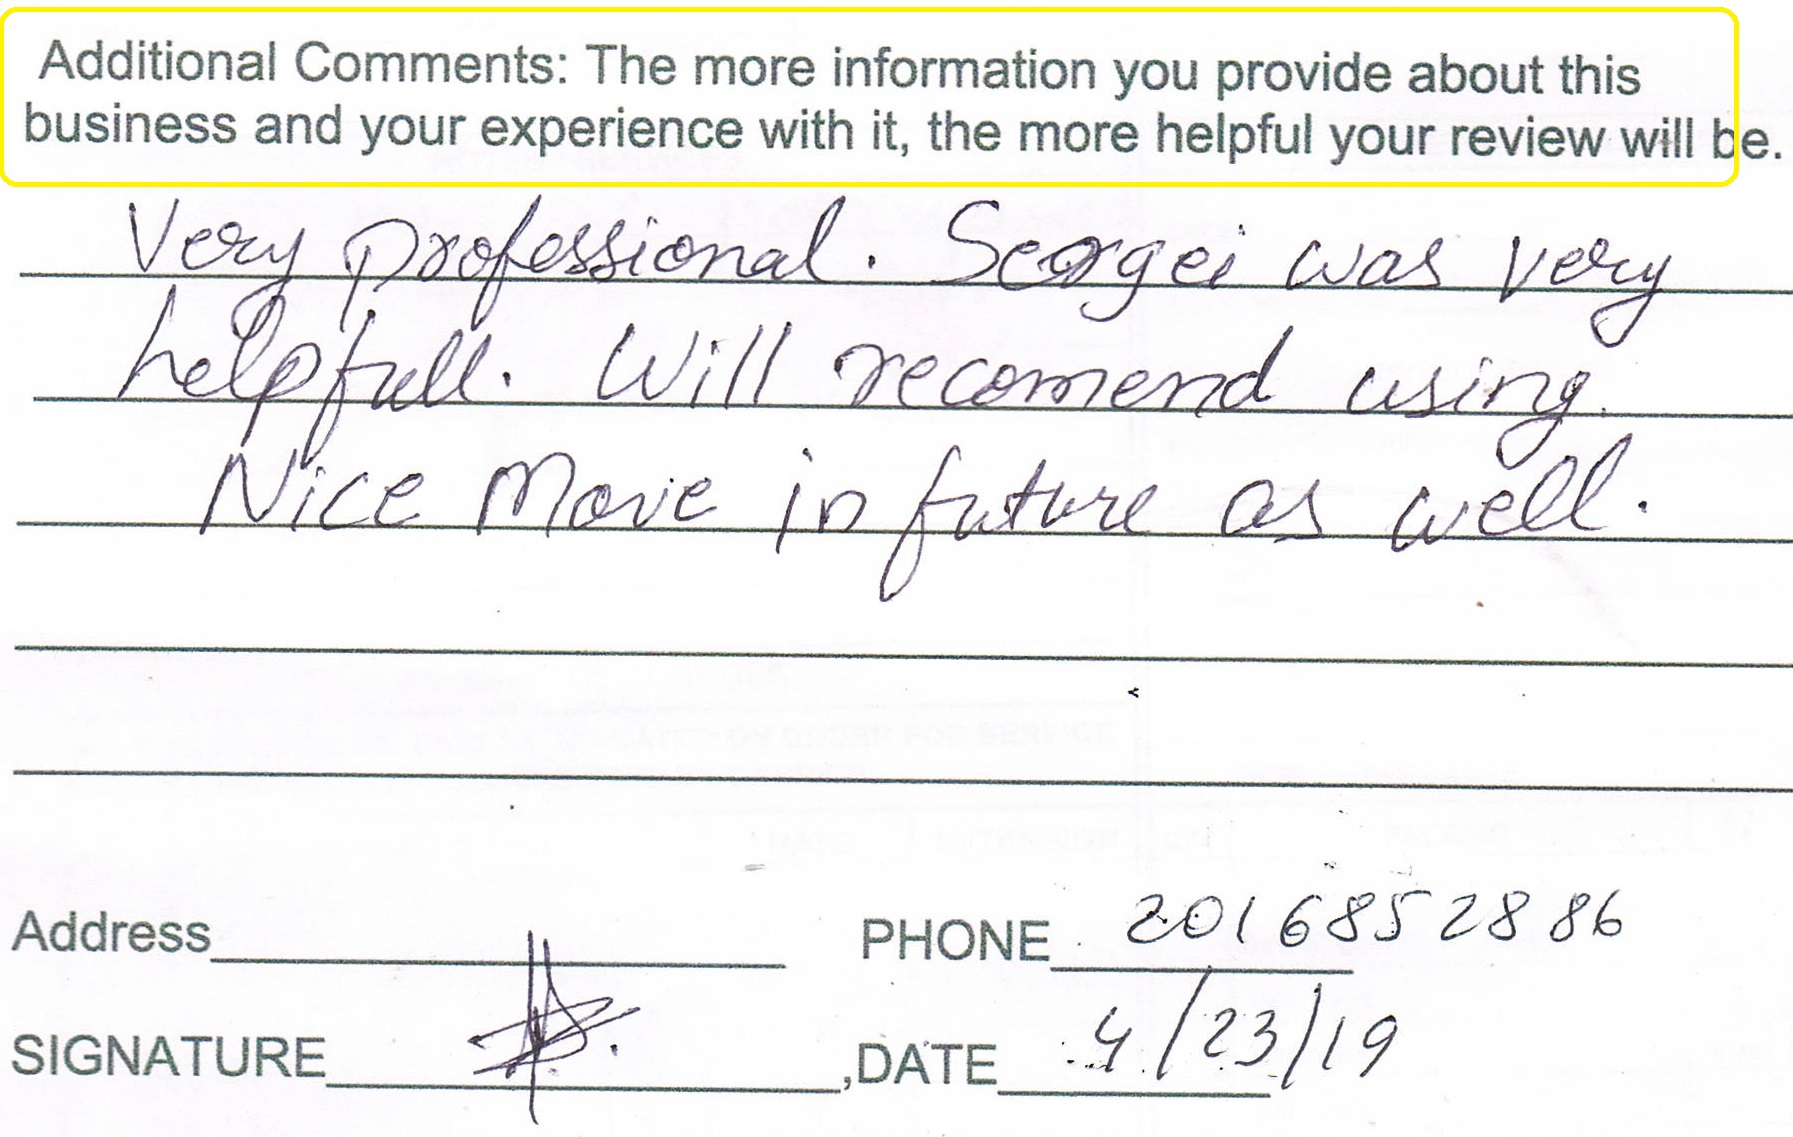 Additional Comments: The more information you provide about this
business and your experience with it, the more helpful your review will be.
Very professional. Sergei was very
helpfull. Will recomend using
Nice Move in future as well.
Address
PHONE 2016852886
SIGNATURE
,DATE 4/23/19